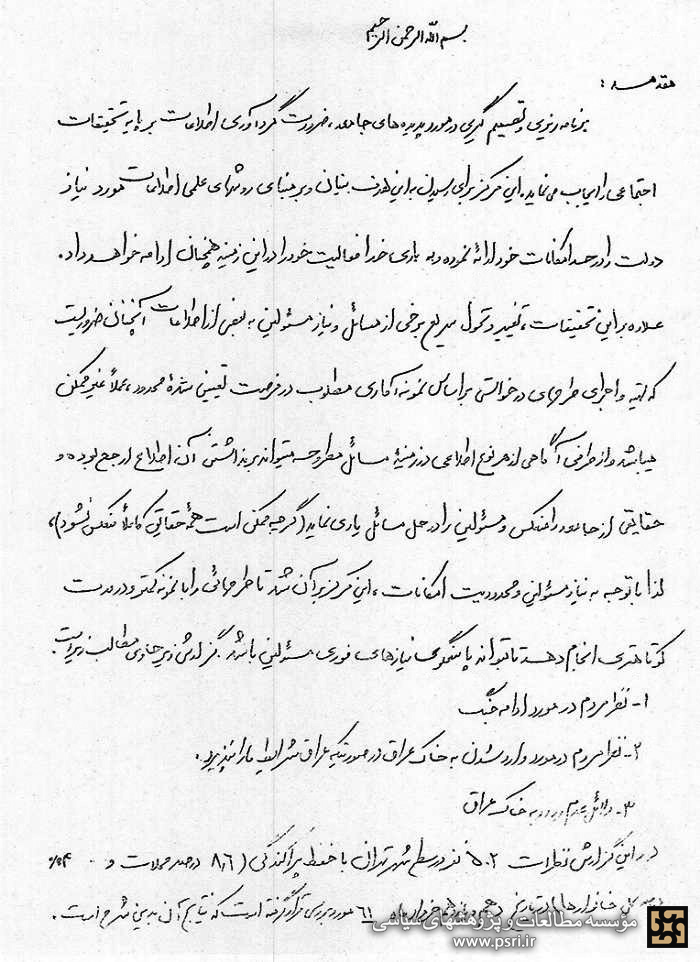 بسم الله الرحمن الرحیم
مقدمه :
برنامه ریزی و تصمیم گیری در مورد پدیده های جامعه، ضرورت گردآوری اطلاعات بر پایه تحقیقات
اجتماعی را ایجاب می نماید. این مرکز برای رسیدن به این هدف بنیان و بر مبنای روشهای علمی اطلاعات مورد نیاز
دولت را در حد امکانات خود ارائه نموده و به یاری خدا فعالیت خود را در این زمینه همچنان ادامه خواهد داد.
علاوه بر این تحقیقات، تغییر و تحول سریع برخی از مسائل و نیاز مسئولین به بعضی از اطلاعات آنچنان ضروریست
که تهیه و اجرای طرحهای درخواستی بر اساس نمونه آماری مطلوب در فرصت تعیین شده محدود، عملاً غیر ممکن
میباشد و از طرفی آگاهی از هر نوع اطلاعی در زمینه مسائل مطروحه میتواند بر نداشتن آن اطلاع ارجح بوده و
حقایقی از جامعه را منعکس و مسئولین را در حل مسائل یاری نماید (گرچه ممکن است همه حقایق کاملاً منعکس نشود)،
لذا با توجه به نیاز مسئولین و محدودیت امکانات، این مرکز بر آن شد تا طرحهائی را با نمونه کمتر و در مدت
کوتاهتری انجام دهد تا بتواند پاسخگوی نیازهای فوری مسئولین باشد. گزارش زیر حاوی مطالب زیر است.
۱- نظر مردم در مورد ادامه جنگ
۲- نظر مردم در مورد وارد شدن به خاک عراق در صورتیکه عراق شرایط ما را نپذیرد.
۳- دلائل عدم ورود به خاک عراق
در این گزارش نظرات ۵۰۲ نفر در سطح شهر تهران با حفظ پراکندگی (۸٫۶ درصد محلات و
کل خانوارها) در تاریخ خرداد ماه ۶۱ مورد بررسی قرار گرفته است که نتایج آن بدین شرح است.
مؤسسه مطالعات و پژوهشهای سیاسی
www.psri.ir